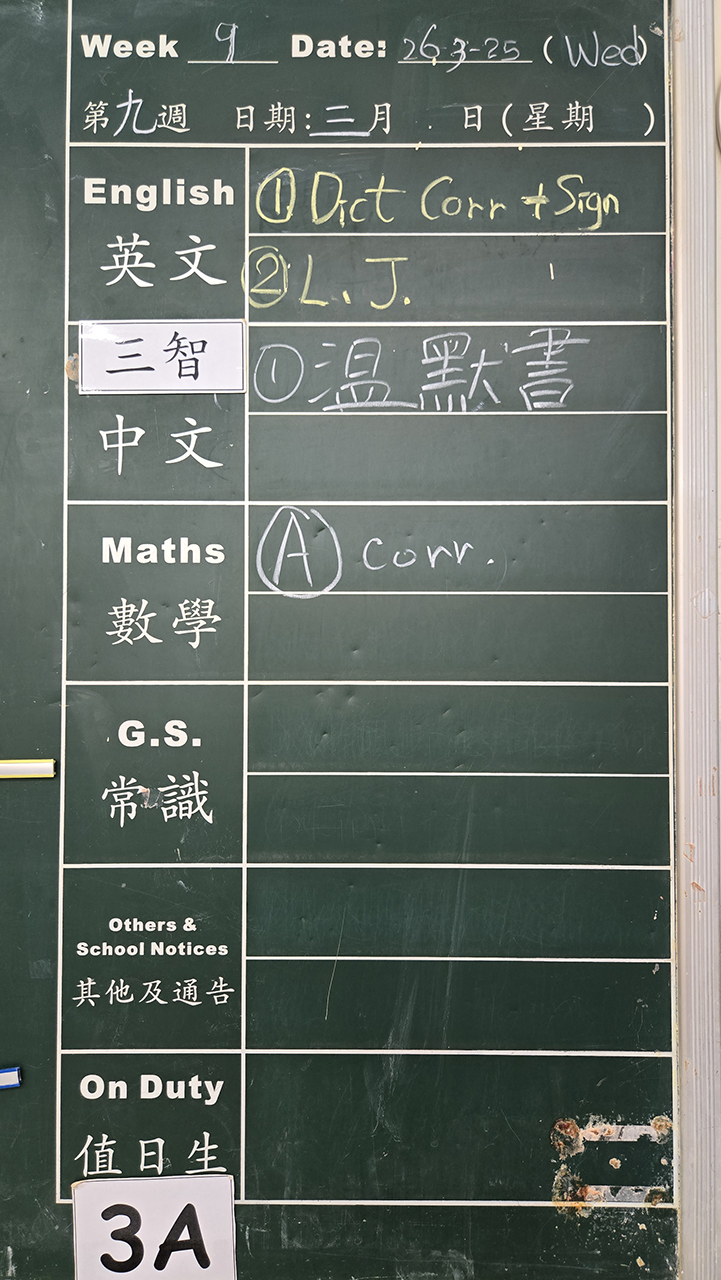 Week 9 Date: 26-3-25 (Wed)
第九週 日期:三月 日(星期 )
English ① Dict Corr + Sign
英文 ② L. J.
三智 ① 温默書
中文
Maths Ⓐ corr.
數學
G.S.
常識
Others &
School Notices
其他及通告
On Duty
值日生
3A